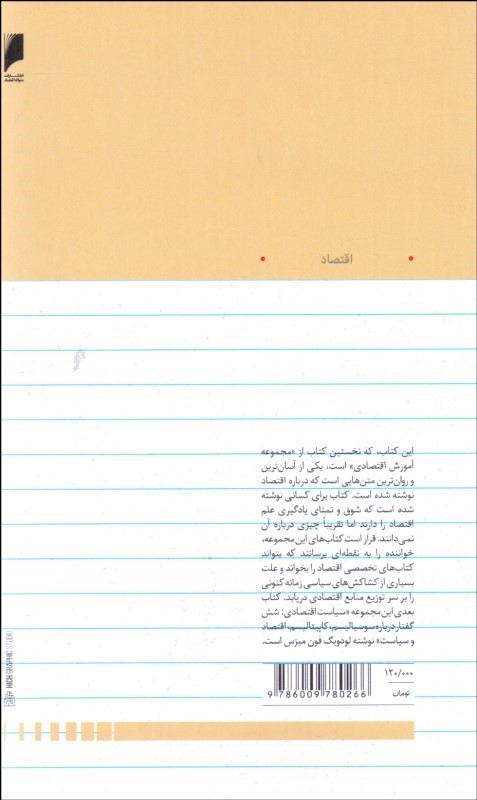 انتشارات
دنیای اقتصاد
اقتصاد
این کتاب، که نخستین کتاب از «مجموعه
آموزش اقتصادی» است، یکی از آسان‌ترین
و روان‌ترین متن‌هایی است که درباره اقتصاد
نوشته شده است. کتاب برای کسانی نوشته
شده است که شوق و تمنای یادگیری علم
اقتصاد را دارند اما تقریباً چیزی درباره آن
نمی‌دانند. قرار است کتاب‌های این مجموعه،
خواننده را به نقطه‌ای برسانند که بتواند
کتاب‌های تخصصی اقتصاد را بخواند و علت
بسیاری از کشاکش‌های سیاسی زمانه کنونی
را بر سر توزیع منابع اقتصادی دریابد. کتاب
بعدی این مجموعه «سیاست اقتصادی: شش
گفتار درباره سوسیالیسم، کاپیتالیسم، اقتصاد
و سیاست» نوشته لودویگ فون میزس است.
۱۲۰/۰۰۰
تومان
9 786009 780266
HICH GRAPHIC STUDIO